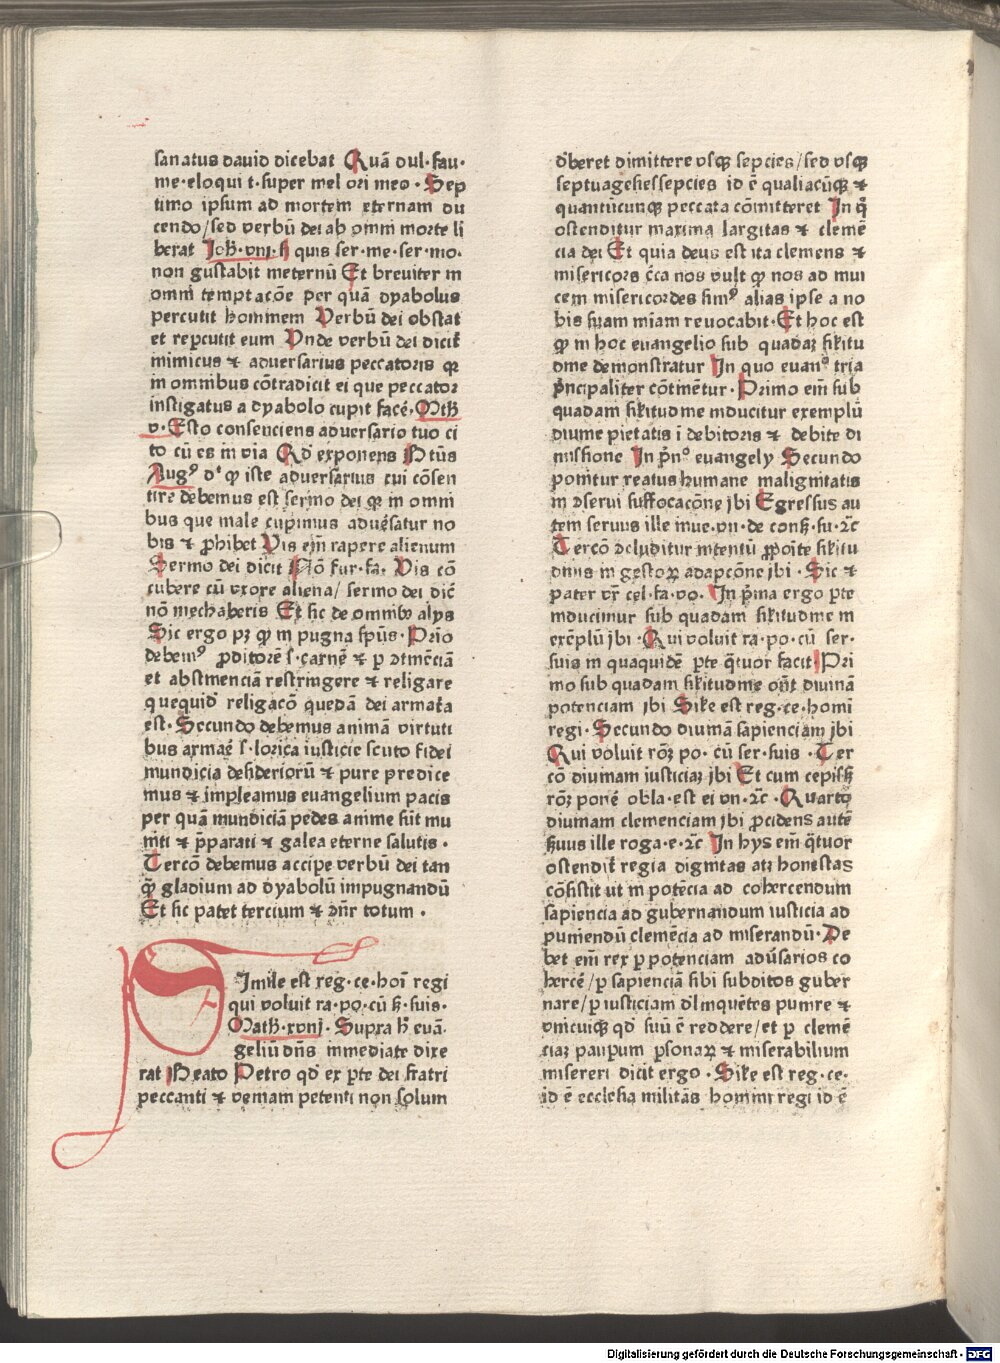 sanatus dauid dicebat Quā dul·fau·
me·eloqui t·super mel ori meo · Sep
timo ipsum ad mortem eternam du
cendo/sed verbū dei ab omni morte li
berat Joh̄·viij·si quis ser·me·ser·mo·
non gustabit meternū Et breuiter in
omni temptacōe per quā dyabolus
percutit hominem Verbū dei obstat
et repcutit eum Vnde verbū dei dicit᷑
inimicus ⁊ aduersarius peccatoris qꝛ
in omnibus cōtradicit ei que peccator
instigatus a dyabolo cupit facē·Mth̄
v·Esto consenciens aduersario tuo ci
to cū es in via Qd̄ exponens btūs
Augꝰ dꝭ ꝙ iste aduersarius cui cōsen
tire debemus est sermo dei qꝛ in omni
bus que male cupimus aduēsatur no
bis ⁊ ꝓhibet Vis em̄ rapere alienum
Sermo dei dicit Nō fur·fa· Vis cō
cubere cū vxore aliena/ sermo dei dic̄
nō mechaberis Et sic de omnibꝰ alys
Sic ergo pꝫ ꝙ in pugna sp̄us·Prīo
debemꝰ ꝓditorē ſ·carnē ⁊ ꝑ ꝯtinēciā
et abstinenciā restringere ⁊ religare
quequid religacō quedā dei armat᷑a
est·Secundo debemus animā virtuti
bus armaē ſ·lorica iusticie scuto fidei
mundicia desideriorū ⁊ pure predice
mus ⁊ impleamus euangelium pacis
per quā mundiciā pedes anime sūt mu
niti ⁊ p̄parati ⁊ galea eterne salutis ·
Tercō debemus accipe verbū dei tan
q̄ gladium ad dyabolū impugnandū
Et sic patet tercium ⁊ ꝯn̄r totum ·
Simile est reg·ce·hoī regi
qui voluit ra·po·cū ẜ·suis·
Math̄·xviij· Supra h̄ euā·
geliū dn̄s inmediate dixe
rat Beato Petro qd̓ ex ꝑte dei fratri
peccanti ⁊ veniam petenti non solum
d̓beret dimittere vsqꝫ sepcies/sed vsqꝫ
septuagesiessepcies id ē qualiacūqꝫ ⁊
quantūcunqꝫ peccata cōmitteret In q̊
ostenditur maxima largitas ⁊ clemē
cia dei Et quia deus est ita clemens ⁊
misericors c̄ca nos vult ꝙ nos ad inui
cem misericordes simꝰ alias ipse a no
bis suam miam reuocabit·Et hoc est
ꝙ in hoc euangelio sub quadaꝫ sil̓itu
dine demonstratur In quo euanꝰ tria
pͥncipaliter cōtinētur·Primo em̄ sub
quadam sil̓itudine inducitur exemplū
diuine pietatis ī debitoris ⁊ debite di
missione In pͥnꝰ euangely Secundo
ponitur reatus humane malignitatis
in ꝯserui suffocacōne jbi Egressus au
tem seruus ille inue·vn·de conẜ·su·ꝛc̄
Tercō ꝯcluditur intentū ꝓpoīte sil̓itu
dinis in gestoꝝ adapcōne jbi · Sic ⁊
pater vr̄ cel·fa·vo· In pͥma ergo ꝑte
inducimur sub quadam sil̓itudine in
exēplū jbi · Qui voluit ra·po·cū ser·
suis in quaquidē ꝑte q̓tuor facit Pri
mo sub quadam sil̓itudine on̄t diuinā
potenciam jbi Sil̓e est reg·ce·homi
regi · Secundo diuinā sapienciam jbi
Qui voluit rōꝫ po· cū ser·suis · Ter
cō diuinam iusticiaꝫ jbi Et cum cepisꝫ
rōꝫ ponē obla·est ei vn·ꝛc̄ · Quarto
diuinam clemenciam jbi ꝓcidens autē
ẜuus ille roga·e·ꝛc̄ In hys em̄ q̓tuor
ostendit᷑ regia dignitas atꝫ honestas
cōsistit ut in potēcia ad cohercendum
sapiencia ad gubernandum iusticia ad
puniendū clemēcia ad miserandū·De
bet em̄ rex ꝑ potenciam adūsarios co
hercē/ꝑ sapienciā sibi subditos guber
nare/ꝑ iusticiam d̓linquētes punire ⁊
vnicuiqꝫ qd̓ suū ē reddere/et ꝑ clemē
ciaꝫ pauꝑum ꝑsonaꝝ ⁊ miserabilium
misereri dicit ergo · Sil̓e est reg·ce·
id ē ecclesia militās homini regi id ē
Digitalisierung gefördert durch die Deutsche Forschungsgemeinschaft - DFG